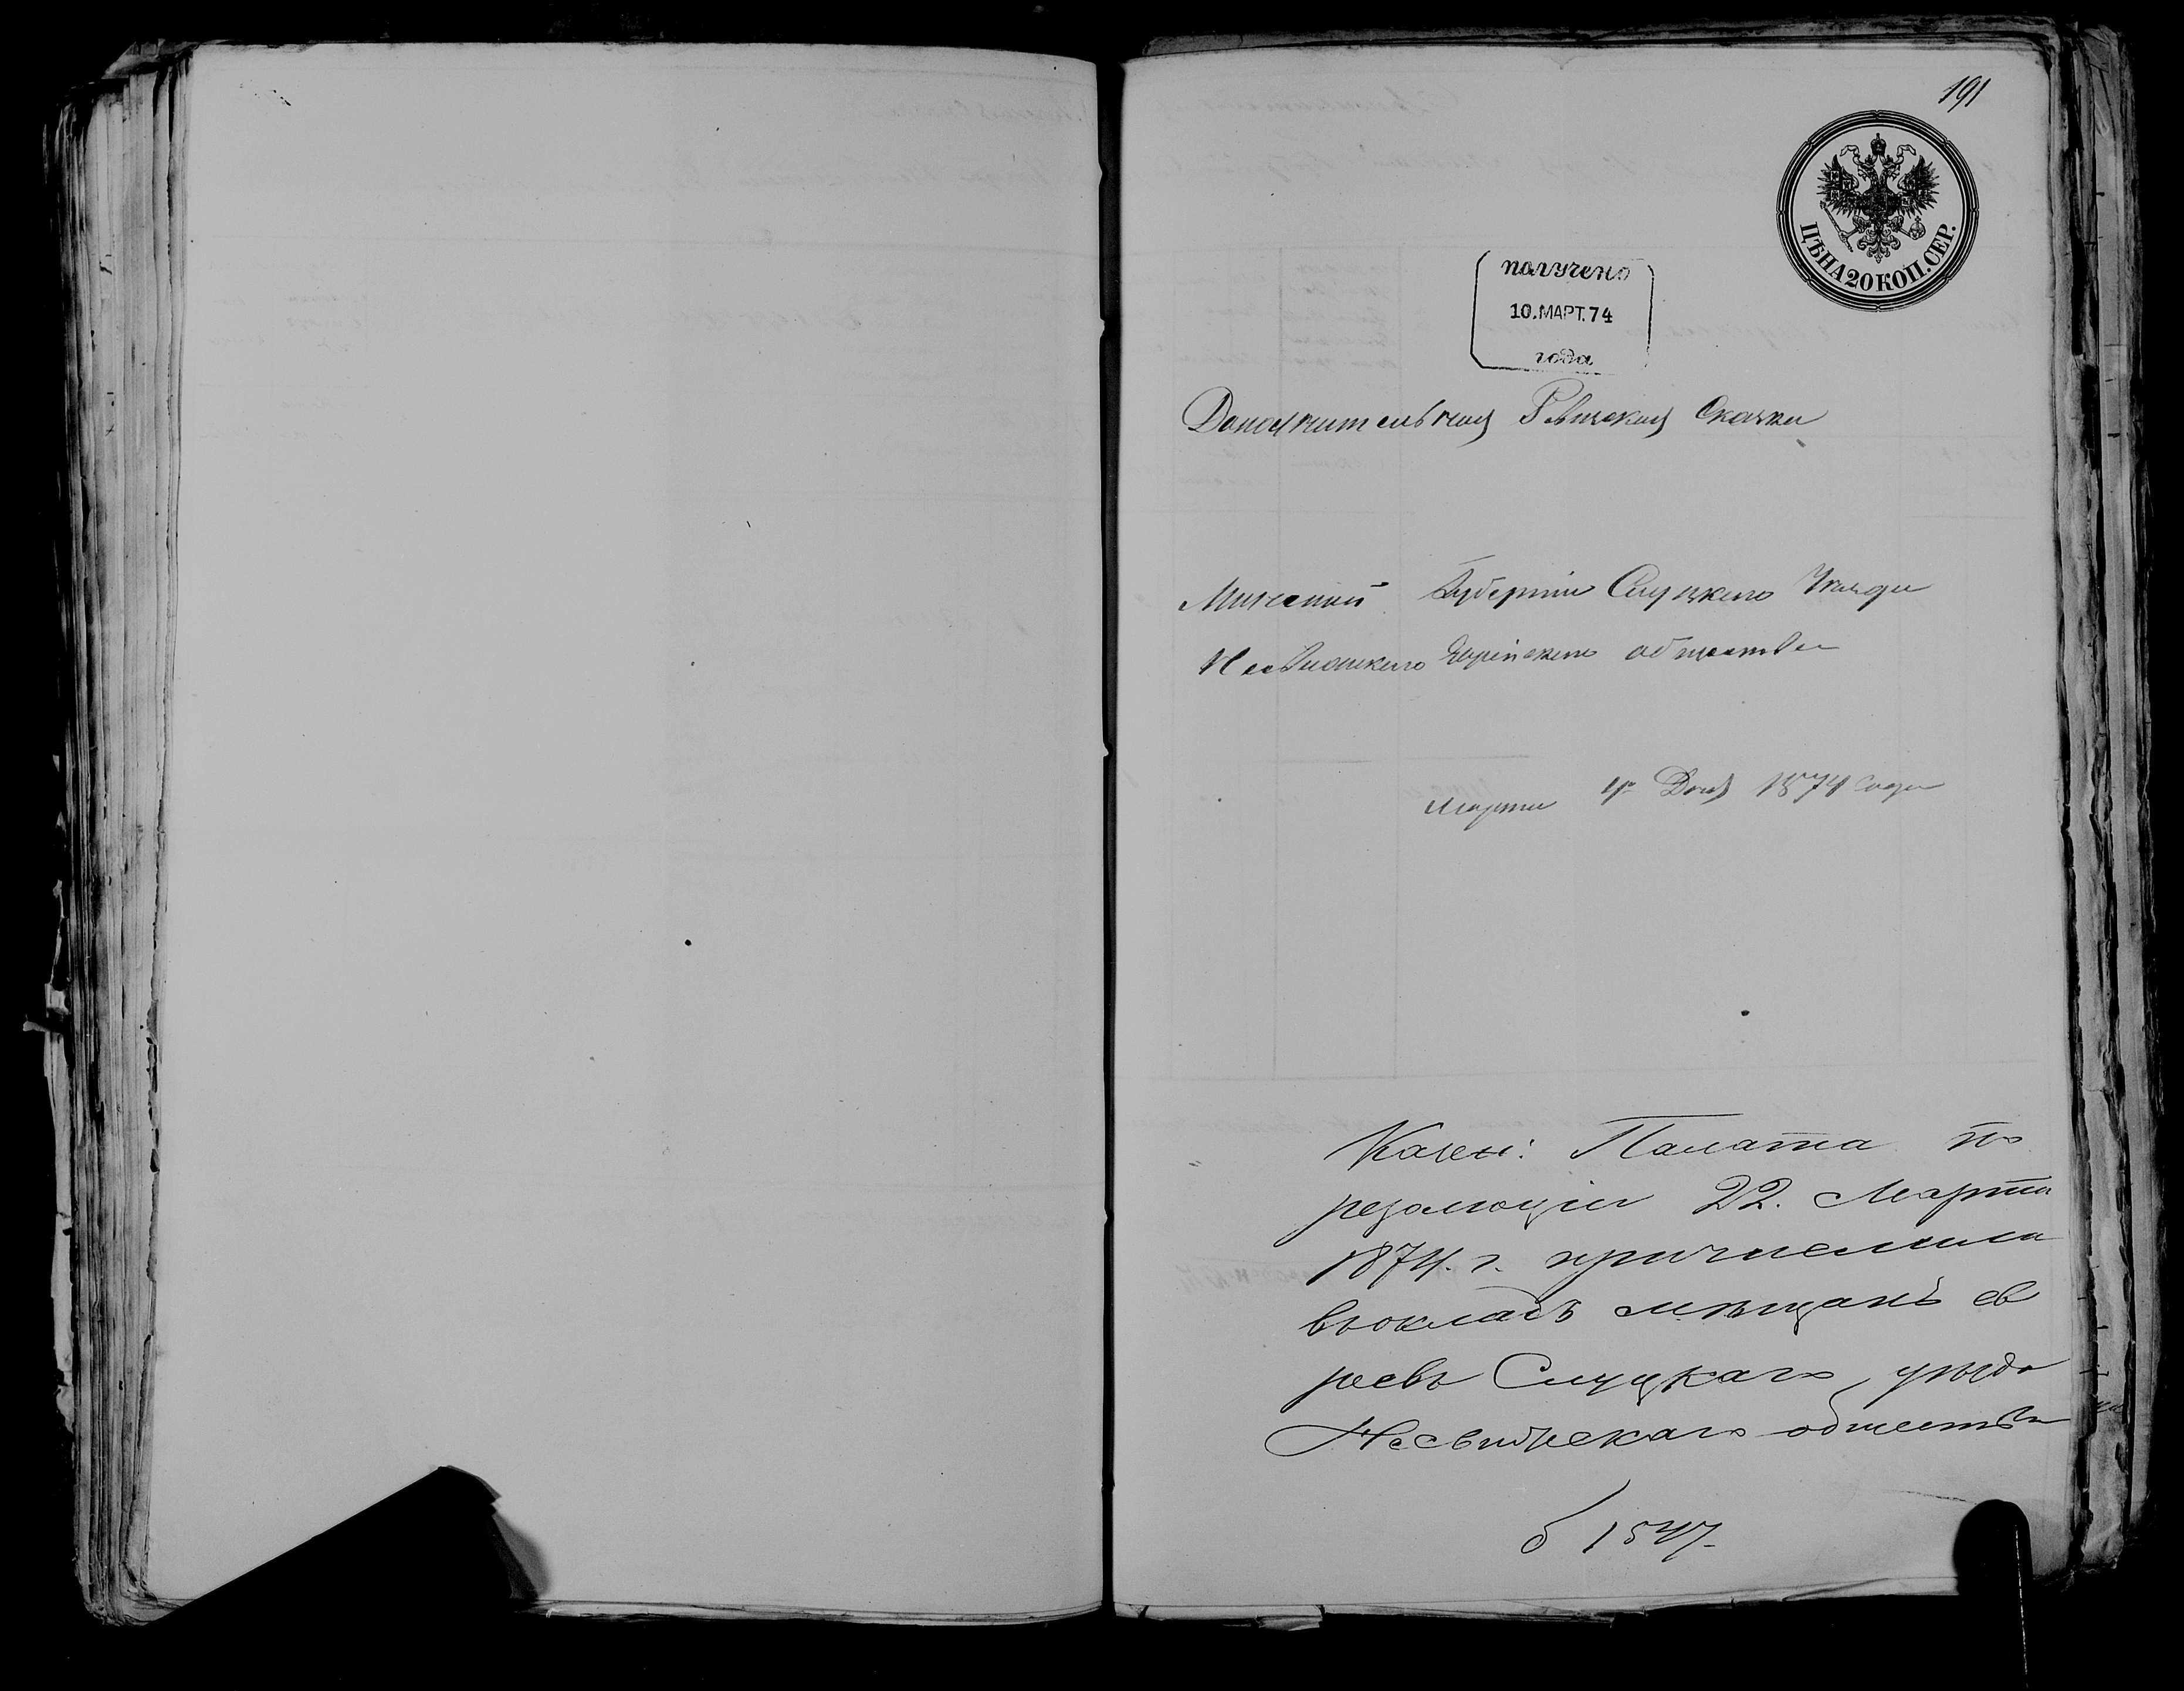 191
ЦѢНА 20 КОП. СЕР.
получено
10.МАРТ.74
года
Дополнительная Ревизская Сказка
Минской Губернии Слуцкаго Уезда
Несвижскаго Еврейскаго общества
Марта 4го Дня 1874 Года
Казен: Палата по
резолюціи 22. Марта
1874. г. причислила
въ окладъ мѣщанъ ев
реевъ Слуцкаго уѣзда
Несвижскаго общества
б 1547.